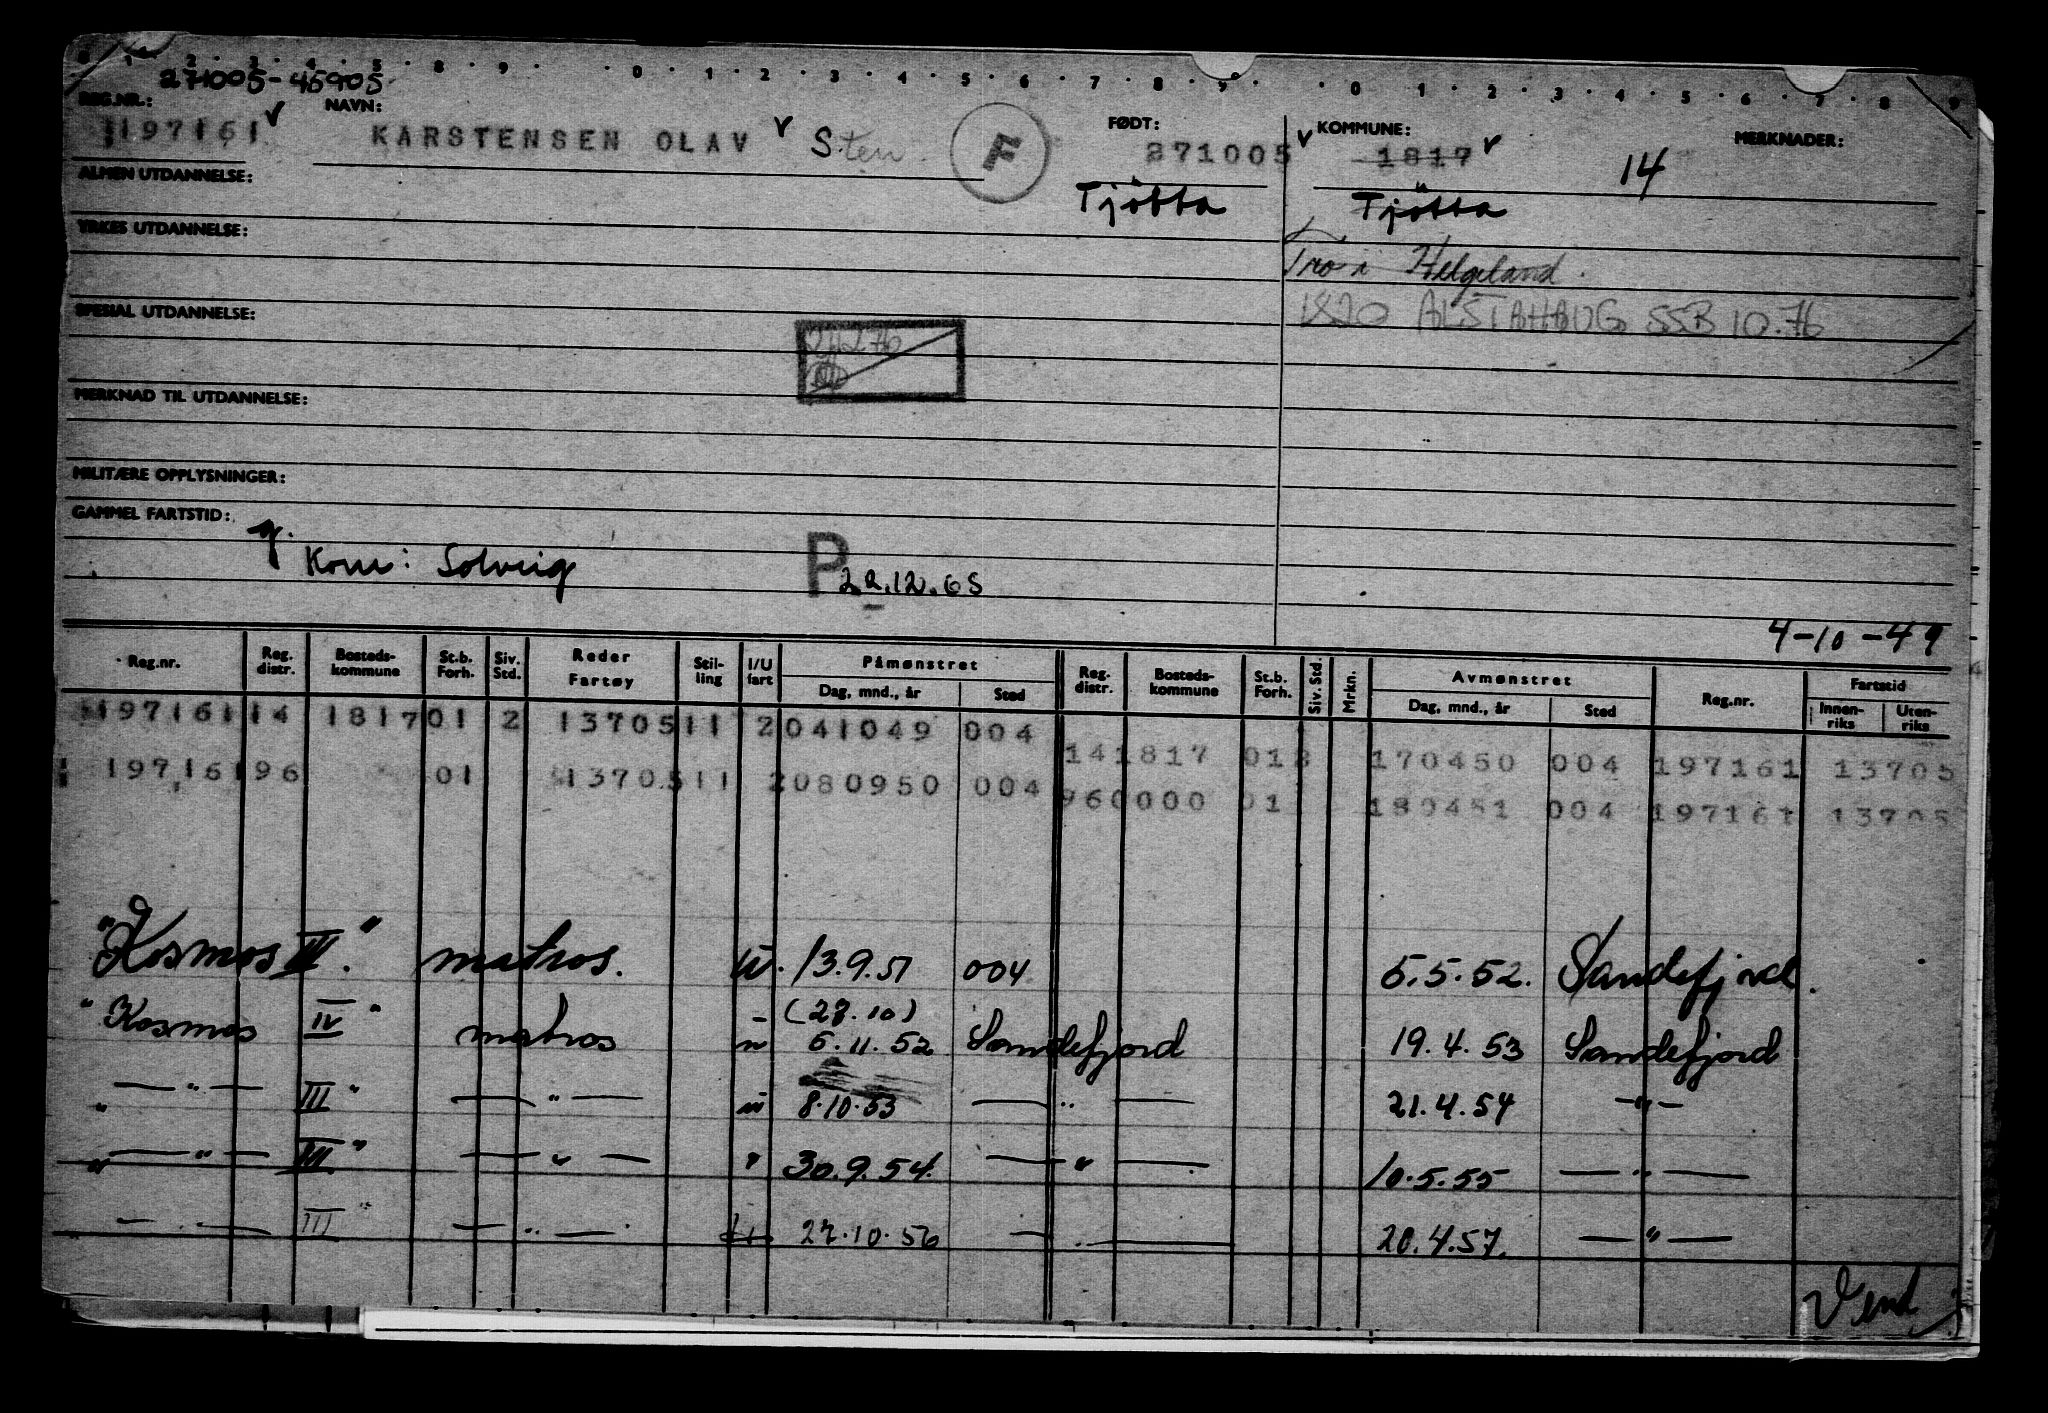 0 1 2 3 4 5 8 9 0 1 2 3 4 5 6 7 8 9 0 1 2 3 4 5 6 7 8 9
271005-45905
REG.NR.: NAVN: FØDT: KOMMUNE: MERKNADER:
197161 KARSTENSEN OLAV Sten F 271005 1817 14
ALMEN UTDANNELSE: Tjötta Tjötta
YRKES UTDANNELSE:
Tro i Helgeland.
SPESIAL UTDANNELSE: 1820 ALSTAHAUG SSB 10.76
MERKNAD TIL UTDANNELSE:
MILITÆRE OPPLYSNINGER:
GAMMEL FARTSTID:
g.
Kone: Solveig P 22.12.65
4-10-49
Reg.nr. Reg. distr. Bosteds-kommune St.b. Forh. Siv. Std. Reder Fartøy Stil-ling I/U fart Påmønstret Dag, mnd., år Sted Reg. distr. Bosteds-kommune St.b. Forh. Siv. Std. Mrkn. Avmønstret Dag, mnd., år Sted Reg.nr. Fartstid Innen-riks Uten-riks
197161 14 1817 01 2 13705 11 2 041049 004
141817 01 170450 004 197161 13705
197161 96 01 13705 11 2 080950 004
960000 01 180451 004 197161 13705
"Kosmos III." matros. U. 13.9.51 004 5.5.52. Sandefjord.
(28.10)
"Kosmos IV" matros 5.11.52 Sandefjord 19.4.53 Sandefjord
— " — III " — " — 8.10.53 — " — 21.4.54 — " —
" — " — III " — " — " 30.9.54. — " — 10.5.55 — " —
" — III " — " — 27.10.56 — " — 20.4.57. — " —
Vend